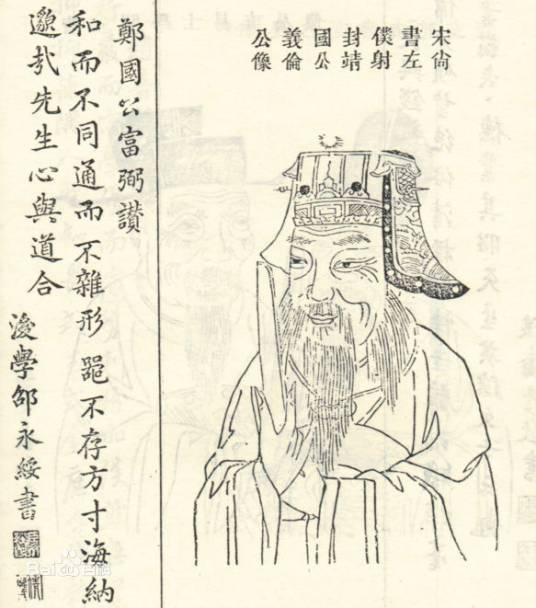 宋尙
書左
僕射
封靖
國公
義倫
公像
鄭國公富弼讃
和而不同通而不雜形器不存方寸海納
邈哉先生心與道合
後學邵永綏書
Bai百科